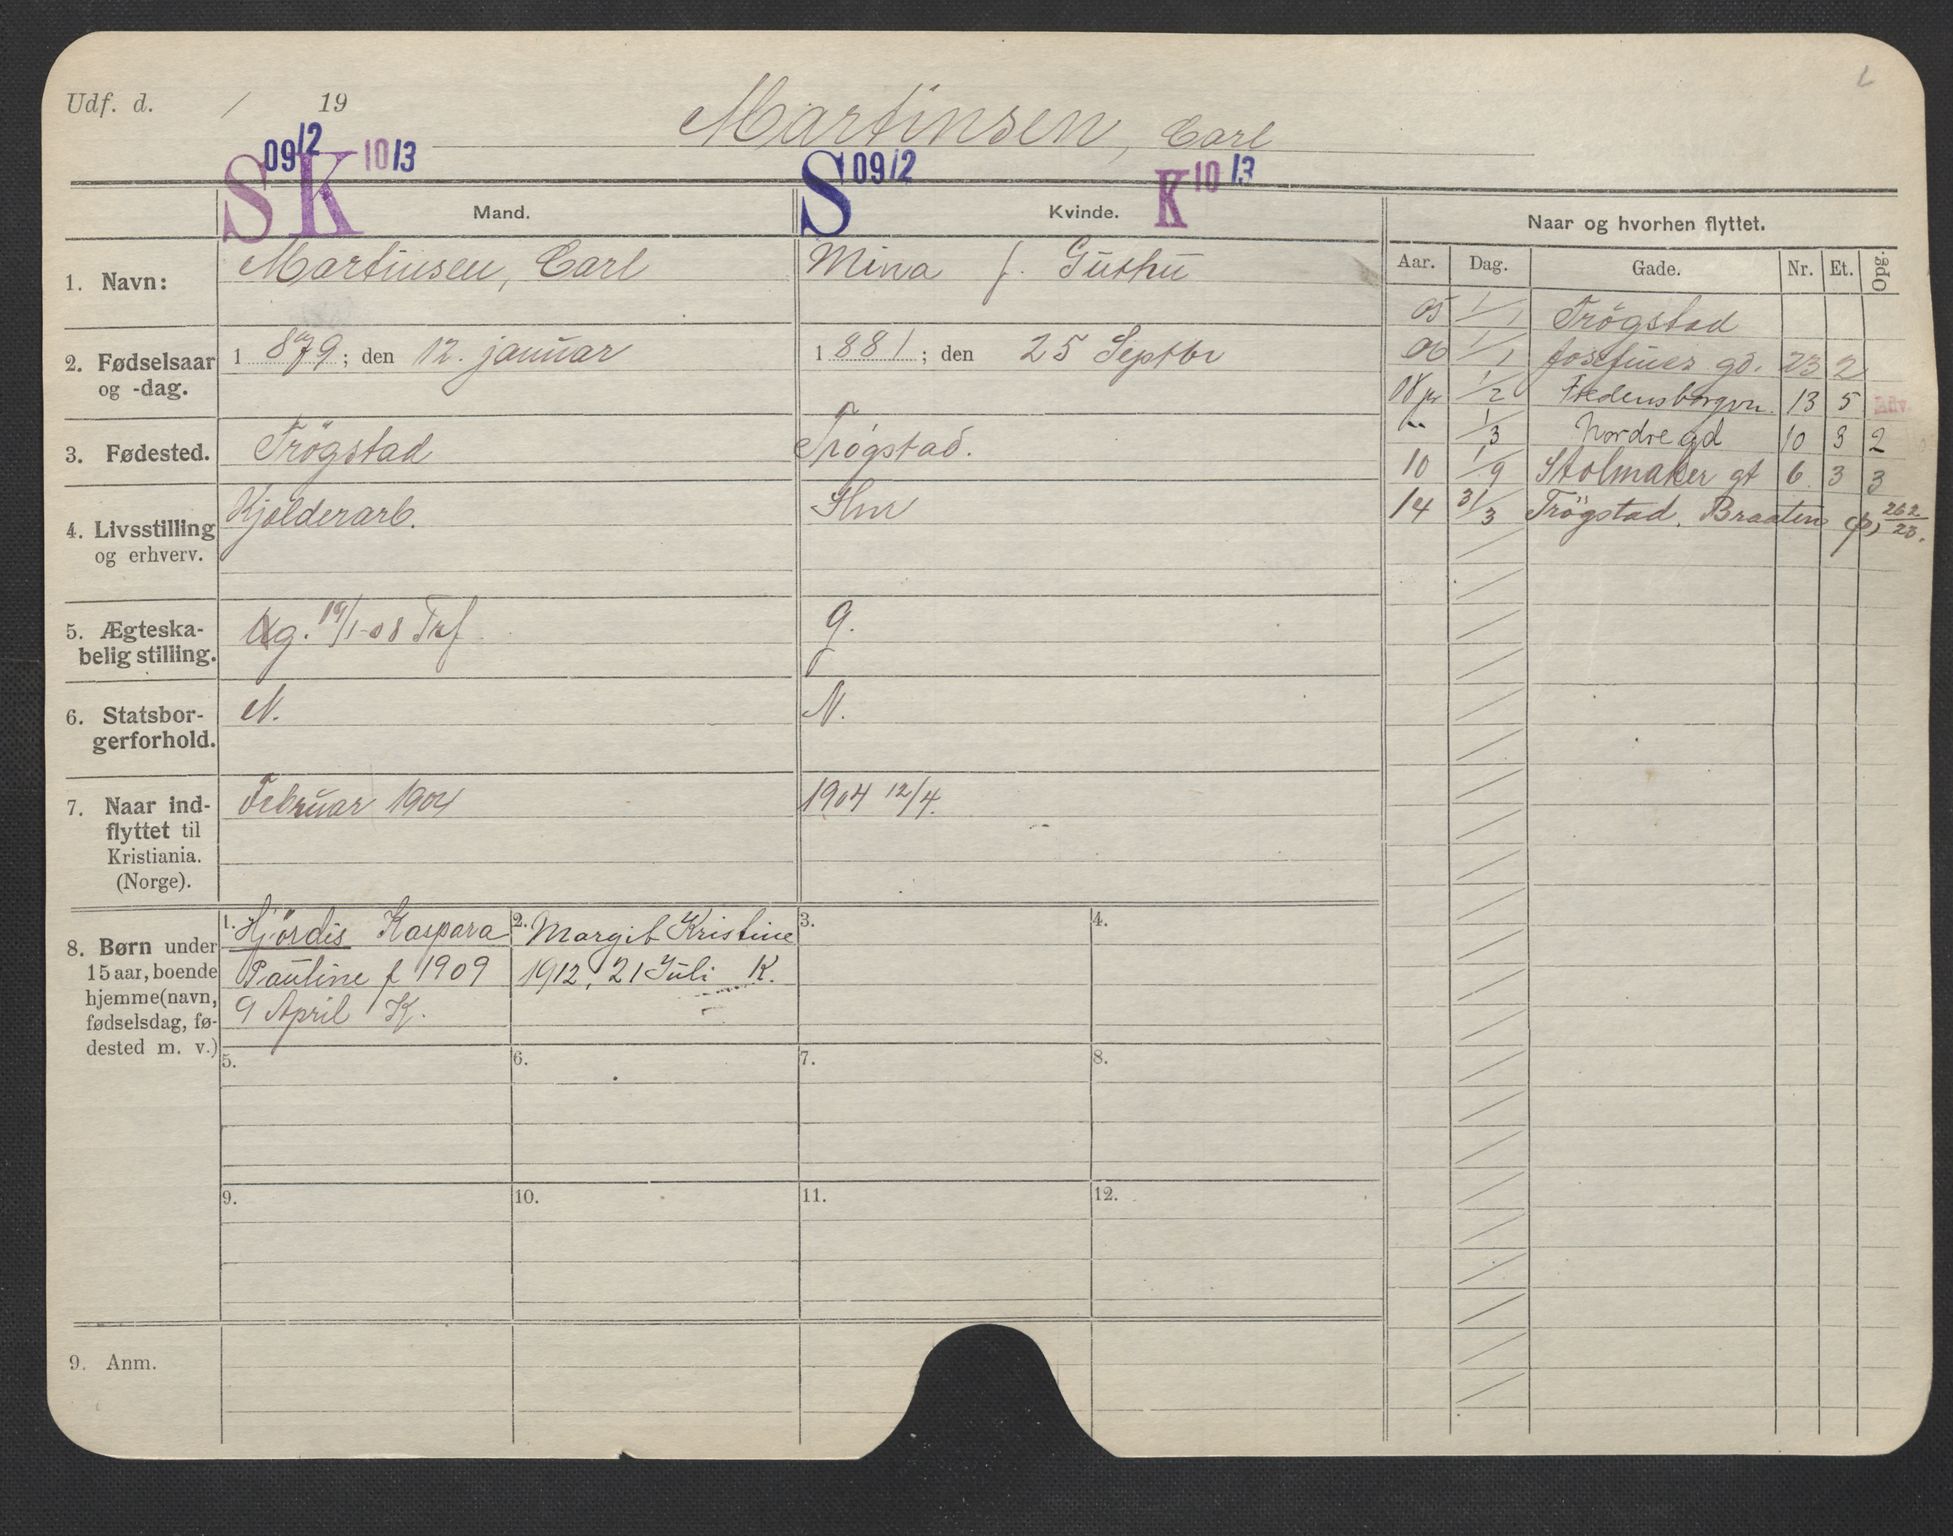 Udf. d. / 19
Martinsen, Carl
S 09/2 K 10/3 S 09/2 K 10/3
Mand. Kvinde. Naar og hvorhen flyttet.
Aar. Dag. Gade. Nr. Et. Opg.
1. Navn: Martinsen, Carl Mina f. Guthu
2. Fødselsaar og -dag. 1879; den 12. januar 1881; den 25 Septbr
3. Fødested. Trögstad Trögstad.
4. Livsstilling og erhverv. Kjelderarb. Hmr
5. Ægteska-
belig stilling. Ug. 19/1-08 Trf g.
6. Statsbor-
gerforhold. N. N.
7. Naar ind-
flyttet til
Kristiania.
(Norge). Februar 1904 1904 12/4.
8. Børn under
15 aar, boende
hjemme (navn,
fødselsdag, fø-
dested m. v.)
1. Hjördis Kaspara
Pauline f 1909
9 April K.
2. Margit Kristine
1912, 21 Juli K.
3. 4.
5. 6. 7. 8.
9. 10. 11. 12.
9. Anm.
05 1/1 Trögstad
06 1/1 Josefines gd. 23 2
08 pr 1/2 Fredensborgvn. 13 5
" 1/3 Nordre gd 10 3 2
10 1/9 Stolmaker gt 6 3 3
14 31/3 Trögstad. Braaten 262/23.